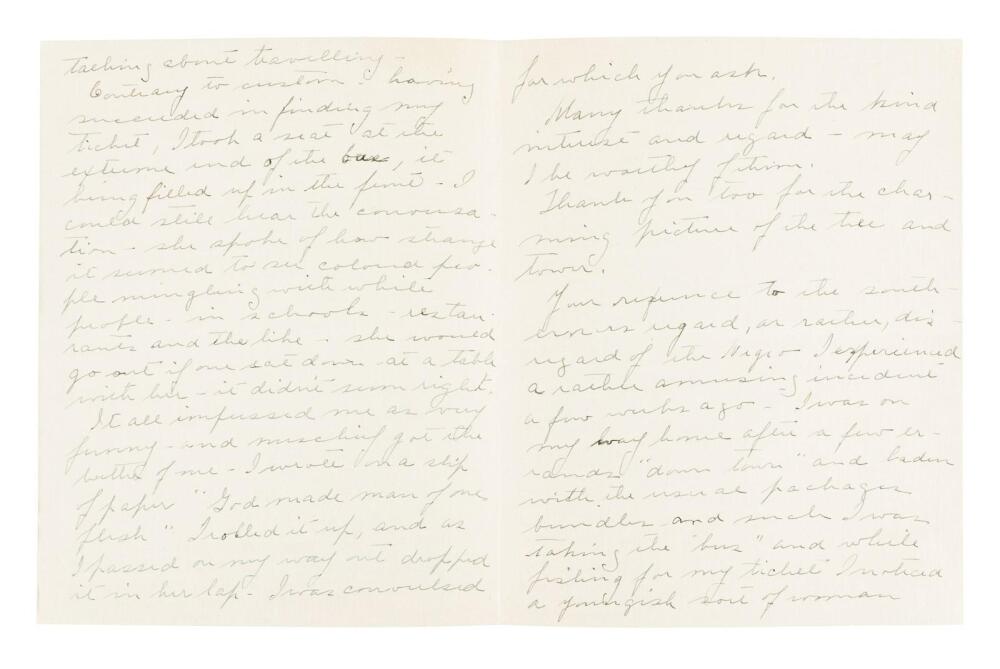 talking about travelling -
Contrary to custom I having
succeeded in finding my
ticket, I took a seat at the
extreme end of the bus, it
being filled up in the front - I
could still hear the conversa -
tion - she spoke of how strange
it seemed to see colored peo -
ple mingling with white
people - in schools - restau -
rants and the like - she would
go out if one sat down at a table
with her - it didn't seem right.
It all impressed me as very
funny - and mischief got the
better of me - I wrote on a slip
of paper "God made man of one
flesh" I rolled it up, and as
I passed on my way out dropped
it in her lap - I was convulsed
for which you ask.
Many thanks for the kind
interest and regard - may
I be worthy of them.
Thank you too for the char -
ming picture of the tree and
tower.
Your refrence to the south -
erners regard, or rather, dis -
regard of the Negro I experienced
a rather amusing incident
a few weeks ago - I was on
my way home after a few er -
rands "down town" and laden
with the usual packages
bundles and such I was
taking the "bus" and while
fishing for my ticket I noticed
a youngish sort of woman